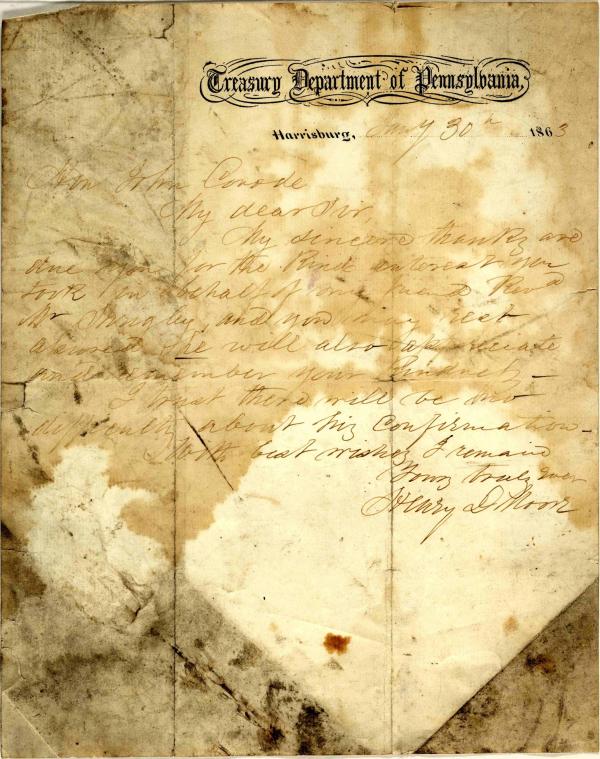 Treasury Department of Pennsylvania,
Harrisburg, 30th 1863
Hon John Covode
My dear Sir,
My sincere thanks are
due you for the Kind interest you
took in behalf of my friend Revd
Mr and you may rest
assured he will also appreciate
and remember your Kindness —
I trust there will be no
difficulty about his confirmation —
With best wishes I remain
Yours truly ever
Henry D Moore